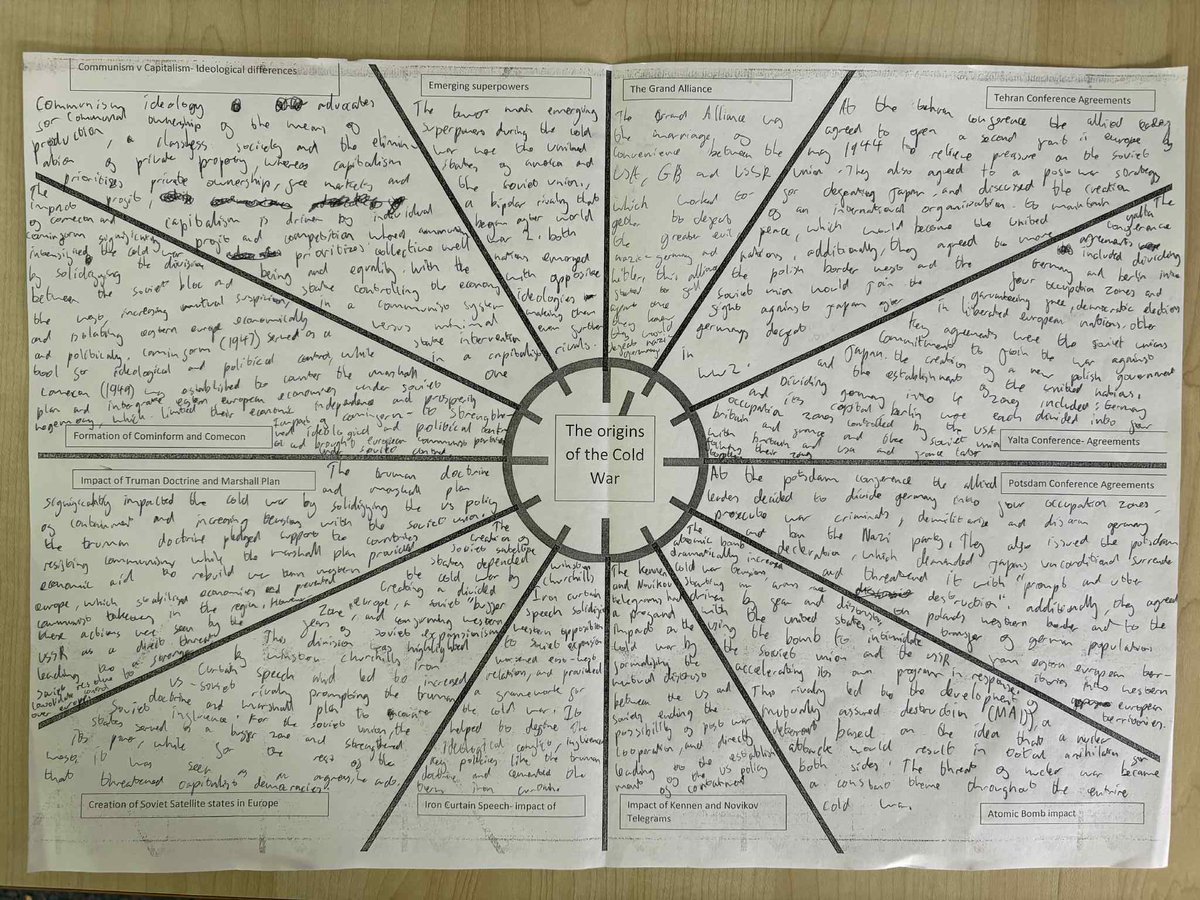 Communism v Capitalism- Ideological differences
Communism ideology advocates
for Communal ownership of the means of
production, a classless society and the elimin-
ation of private property whereas capitalism
prioritizes private ownership, free markets and
profit,
capitalism is driven by individual
profit and competition where communism
prioritizes collective well
being and equality. With the
state controlling the economy
in a communist system
versus minimal
state intervention
in a capitalist
one
Emerging superpowers
The two main emerging
superpowers during the cold
war were the united
states of america and
the soviet union,
a bipolar rivalry that
began after world
war 2. both
nations emerged
with opposing
ideologies
making them
even further
rivals.
The Grand Alliance
The Grand Alliance was
the marriage, of
convenience between the
USA, GB and USSR
which worked to-
gether to defeat
the greater evil
nazi-germany and
hitler, this alliance
started to fall
apart once
they knew
they would
defeat nazi
germany
Tehran Conference Agreements
At the tehran conference the allied
agreed to open a second front in europe by
may 1944 to relieve pressure on the soviet
union. They also agreed to a post war strategy
for defeating Japan and discussed the creation
of an international organisation to maintain
peace, which would become the united
nations, additionally, they agreed to move
the polish border west and the
soviet union would join the
fight against japan after
germanys defeat
in
WW2.
The
yalta
conference
agreements, included dividing
Germany and berlin into
four occupation zones and
garunteeing free, democratic elections
in liberated european nations. other
key agreements were the soviet unions
commitment to join the war against
Japan. the creation of a new polish government
and the establishment of the united nations.
Dividing germany into 4 zones included: Germany
and its capital berlin were each divided into four
occupation zones controlled by the USA
britain and france and the soviet union
with britain and usa and france later
their zones
Yalta Conference- Agreements
The
impact
of comecon and
cominform significantly
intensified the cold war
by solidifying the division
between the soviet bloc and
the west, increasing mutual suspicion,
and isolating eastern europe economically
and politically. cominform (1947) served as a
tool for ideological and political control, while
comecon (1949) was established to counter the marshall
plan and integrate eastern european economies under soviet
hegemony, which limited their economic independence and prosperity
impact of cominform- to strengthen
had ideological and political control
and brought european communist parties
under soviet control
Formation of Cominform and Comecon
The origins
of the Cold
War
Impact of Truman Doctrine and Marshall Plan
The truman doctrine
and marshall plan
significantly impacted the cold war by solidifying the US policy
of containment and increasing tension with the soviet union.
the truman doctrine pledged support to countries
resisting communism while the marshall plan provided
economic aid to rebuild war torn western
europe, which stabilised economies and prevented
communist takeover in the region. However
these actions were seen by the
USSR as a direct threat
leading to a stronger
soviet resolve to
consolidate control
over europe
The
creation of
soviet satellite
states depended
the cold war by
creating a divided
europe, a soviet "buffer
zone", and confirming western
fears of soviet expansionism
This division was highlighted
by winston churchills iron
curtain speech and led to increased
us-soviet rivalry prompting the truman
doctrine and marshall plan to
soviet influence. For the soviet union, the
states served as a buffer zone and strengthened
its power, while for the rest of the
west it was seen as an aggressive act
that threatened capitalist democracies.
Creation of Soviet Satellite states in Europe
winston
churchills
Iron curtain
speech solidified
western opposition
to soviet expansion
worsened east-west
relation, and provided
a framework for
the cold war. It
helped to define the
ideological conflict, influenced
key policies like the truman
doctrine and cemented the
term iron curtain.
Iron Curtain Speech- impact of
The kennen
and Novikov
telegrams had
a profound
impact on the
cold war by
formalising the
mutual distrust
between the US and
soviets, ending the
possibility of post war
cooperation, and directly
leading to the establish
ment of the US policy
of containment
Impact of Kennen and Novikov
Telegrams
The
atomic bomb
dramatically increased
cold war tension
starting an arms race
driven by fear and distrust
with the united states
using the bomb to intimidate
the soviet union and the USSR
accelerating its own program in response.
This rivalry led to the development of
mutually assured destruction (MAD), a
deterrent based on the idea that a nuclear
attack would result in total anihilation for
both sides. The threat of nuclear war became
a constant theme throughout the entire
cold war.
Atomic Bomb impact
Potsdam Conference Agreements
At the potsdam conference the allied
leaders decided to divide germany into four occupation zones,
prosecute war criminals, demilitarise and disarm germany
and ban the Nazi party. They also issued the potsdam
decleration, which demanded japans unconditional surrender
and threatened it with "prompt and utter
destruction". additionally, they agreed
on polands western border and to the
transfer of german population
from eastern european terr-
itories into western
european
territories.